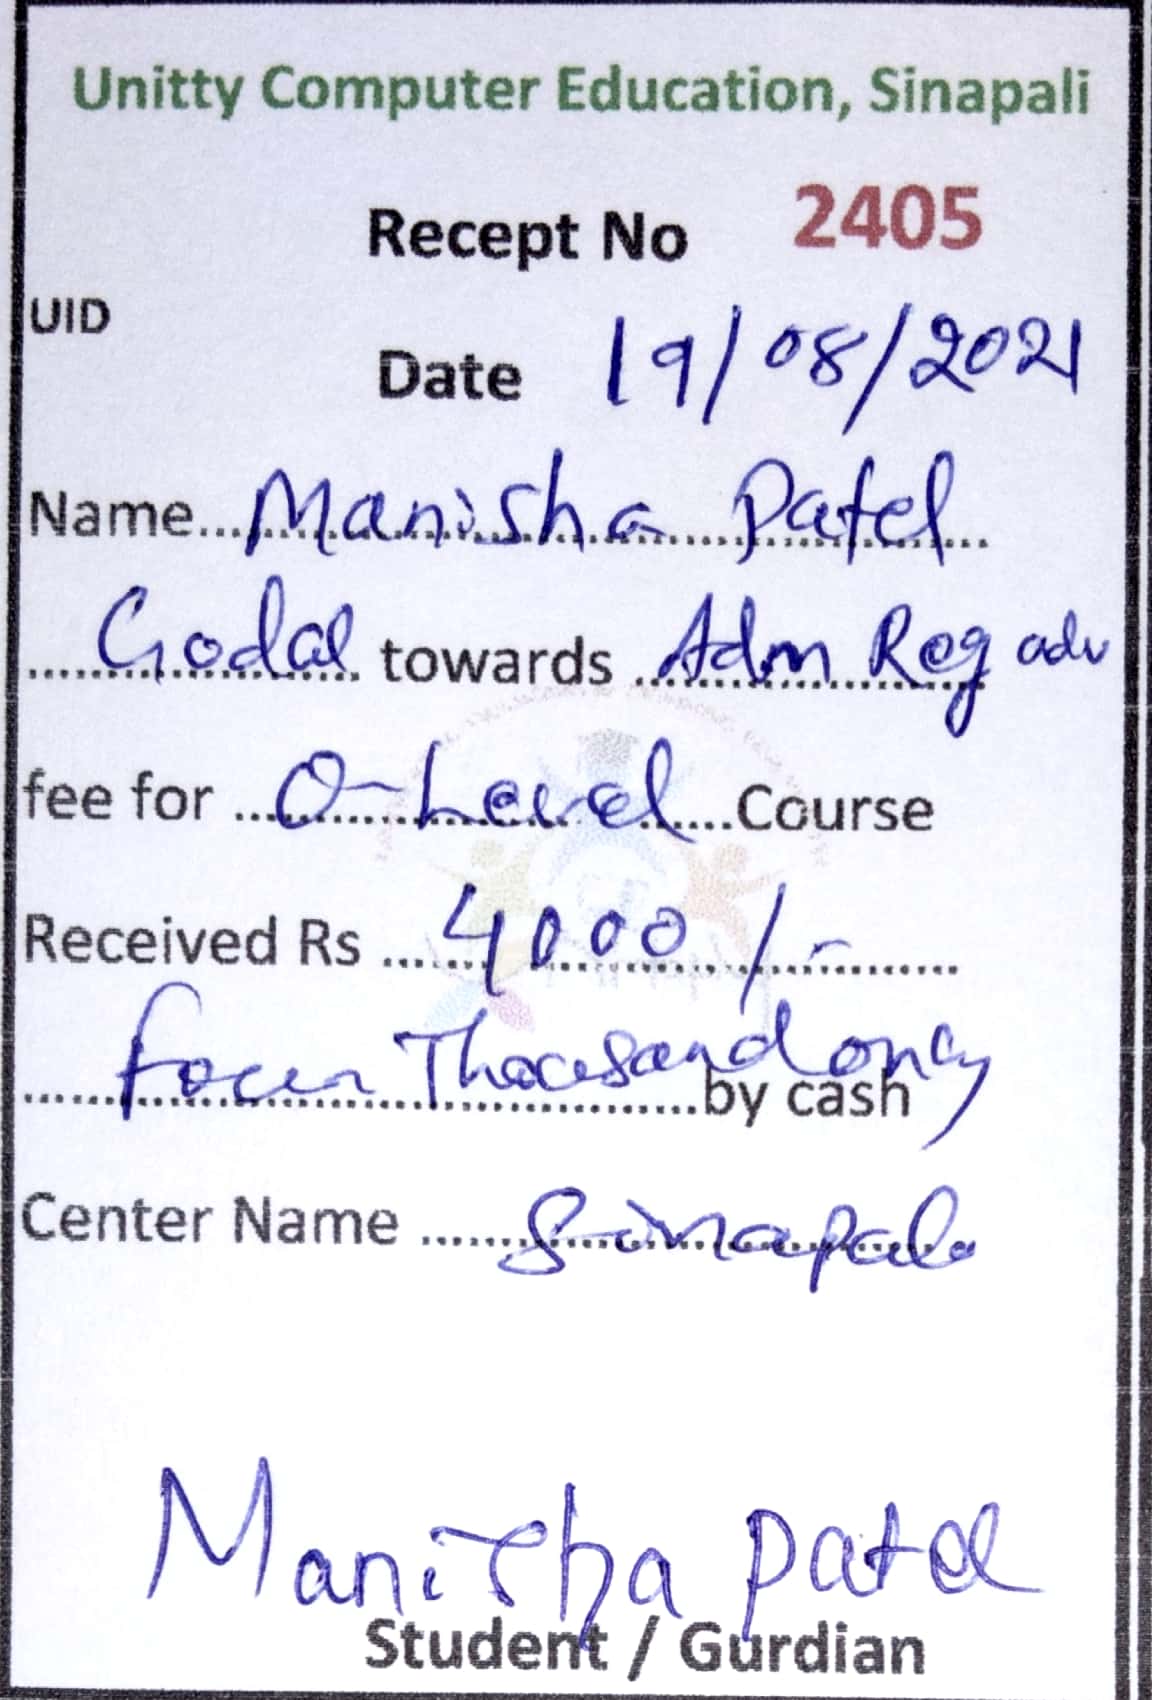 Unitty Computer Education, Sinapali
Recept No 2405
UID
Date 19/08/2021
Name... Manisha Patel
Godal towards Adm Reg adv
fee for O-Level Course
Received Rs 4000/-
four Thousand only by cash
Center Name Sinapali
Manisha Patel
Student / Gurdian